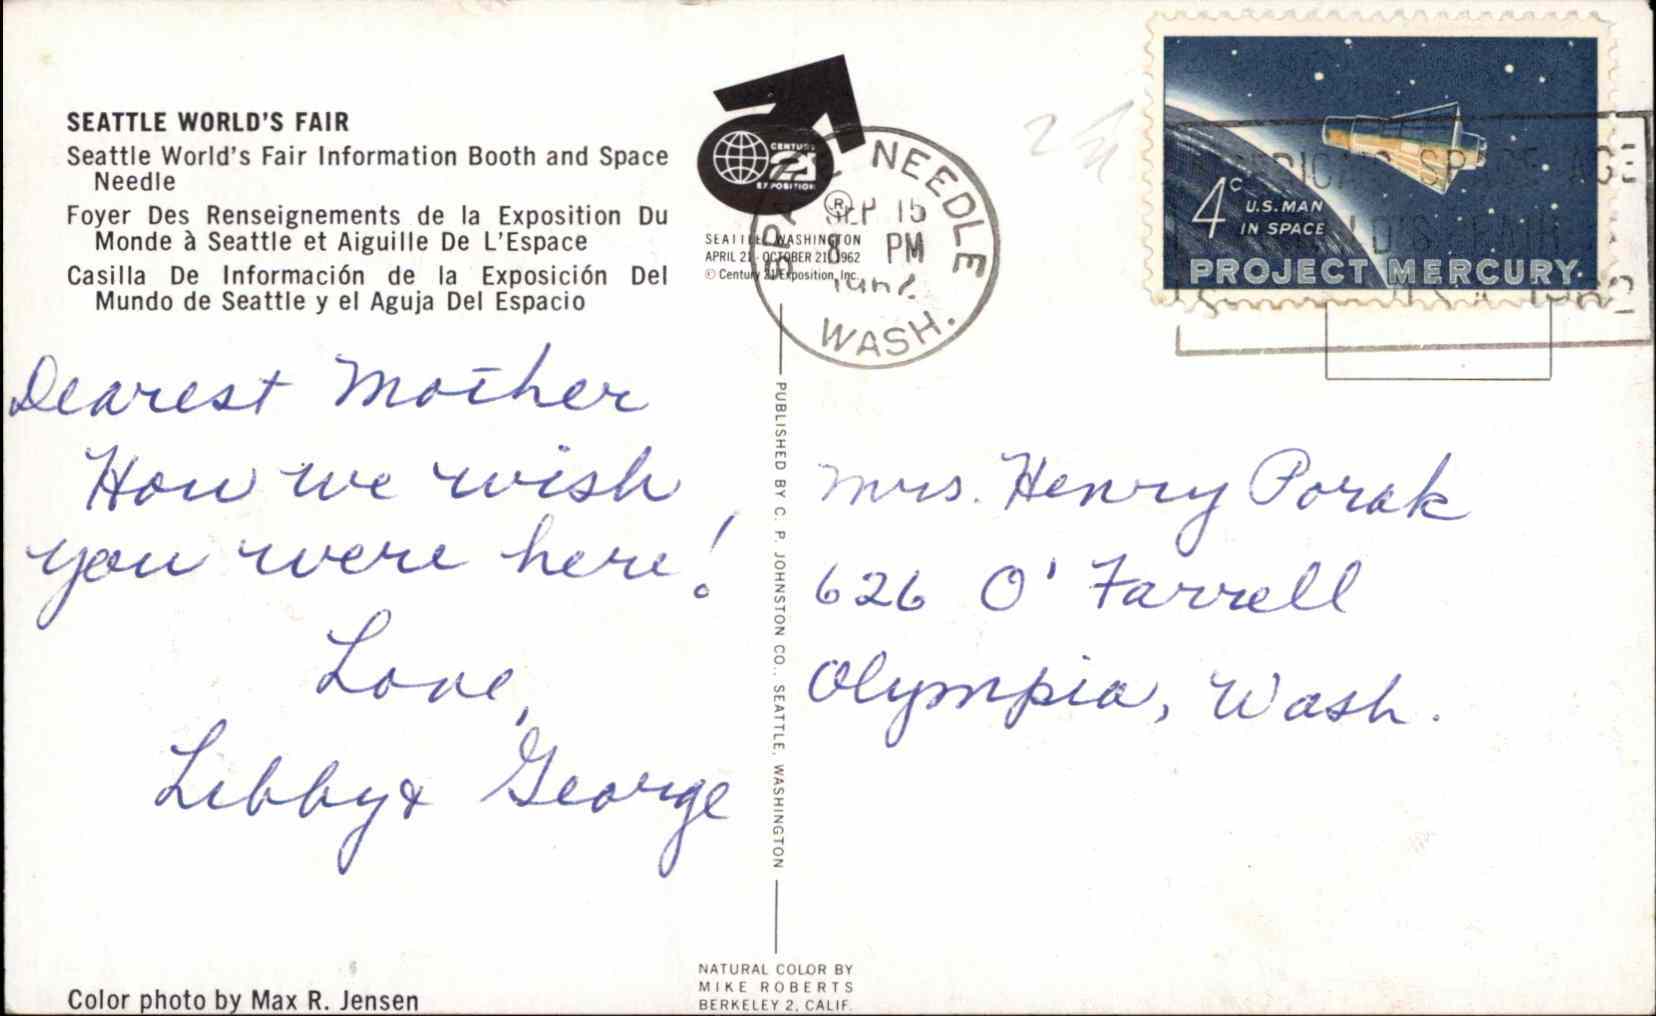 SEATTLE WORLD'S FAIR
Seattle World's Fair Information Booth and Space
Needle
Foyer Des Renseignements de la Exposition Du
Monde à Seattle et Aiguille De L'Espace
Casilla De Información de la Exposición Del
Mundo de Seattle y el Aguja Del Espacio
Dearest Mother
How we wish
you were here!
Love,
Libby & George
Color photo by Max R. Jensen
CENTURY
21
EXPOSITION
®
SEATTLE, WASHINGTON
APRIL 21 - OCTOBER 21, 1962
© Century 21 Exposition, Inc.
SPACE NEEDLE
SEP 15
8 PM
1962
WASH.
PUBLISHED BY C. P. JOHNSTON CO., SEATTLE, WASHINGTON
NATURAL COLOR BY
MIKE ROBERTS
BERKELEY 2, CALIF.
4c
U.S. MAN
IN SPACE
PROJECT MERCURY
AMERICA'S SPACE AGE
WORLD'S FAIR
USA 1962
Mrs. Henry Porak
626 O'Farrell
Olympia, Wash.